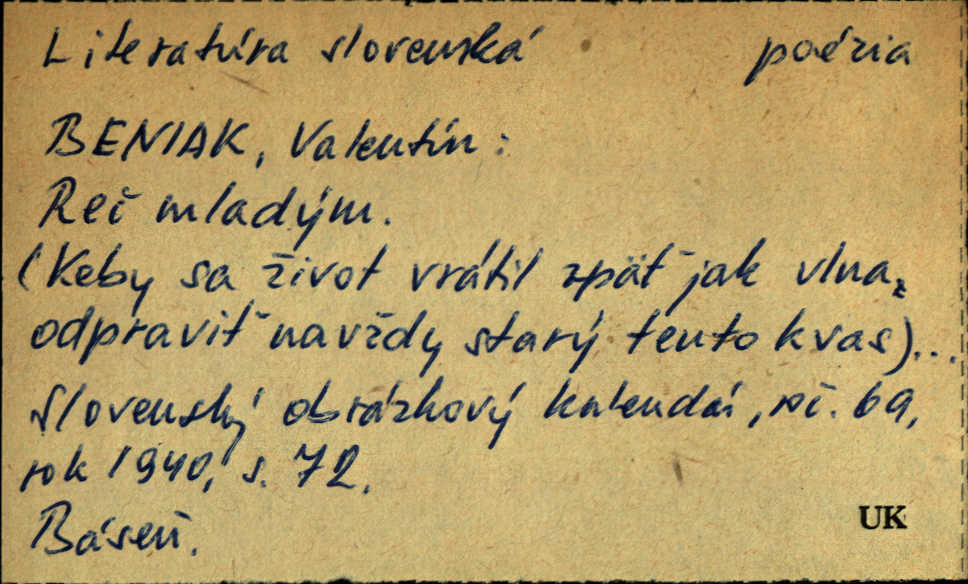 Literatúra slovenská poézia
BENIAK, Valentín:
Reč mladým.
(Keby sa život vrátil zpäť jak vlna,
odpraviť navždy starý tento kvas)...
Slovenský obrázkový kalendár, roč. 69,
rok 1940, s. 72.
Báseň.
UK